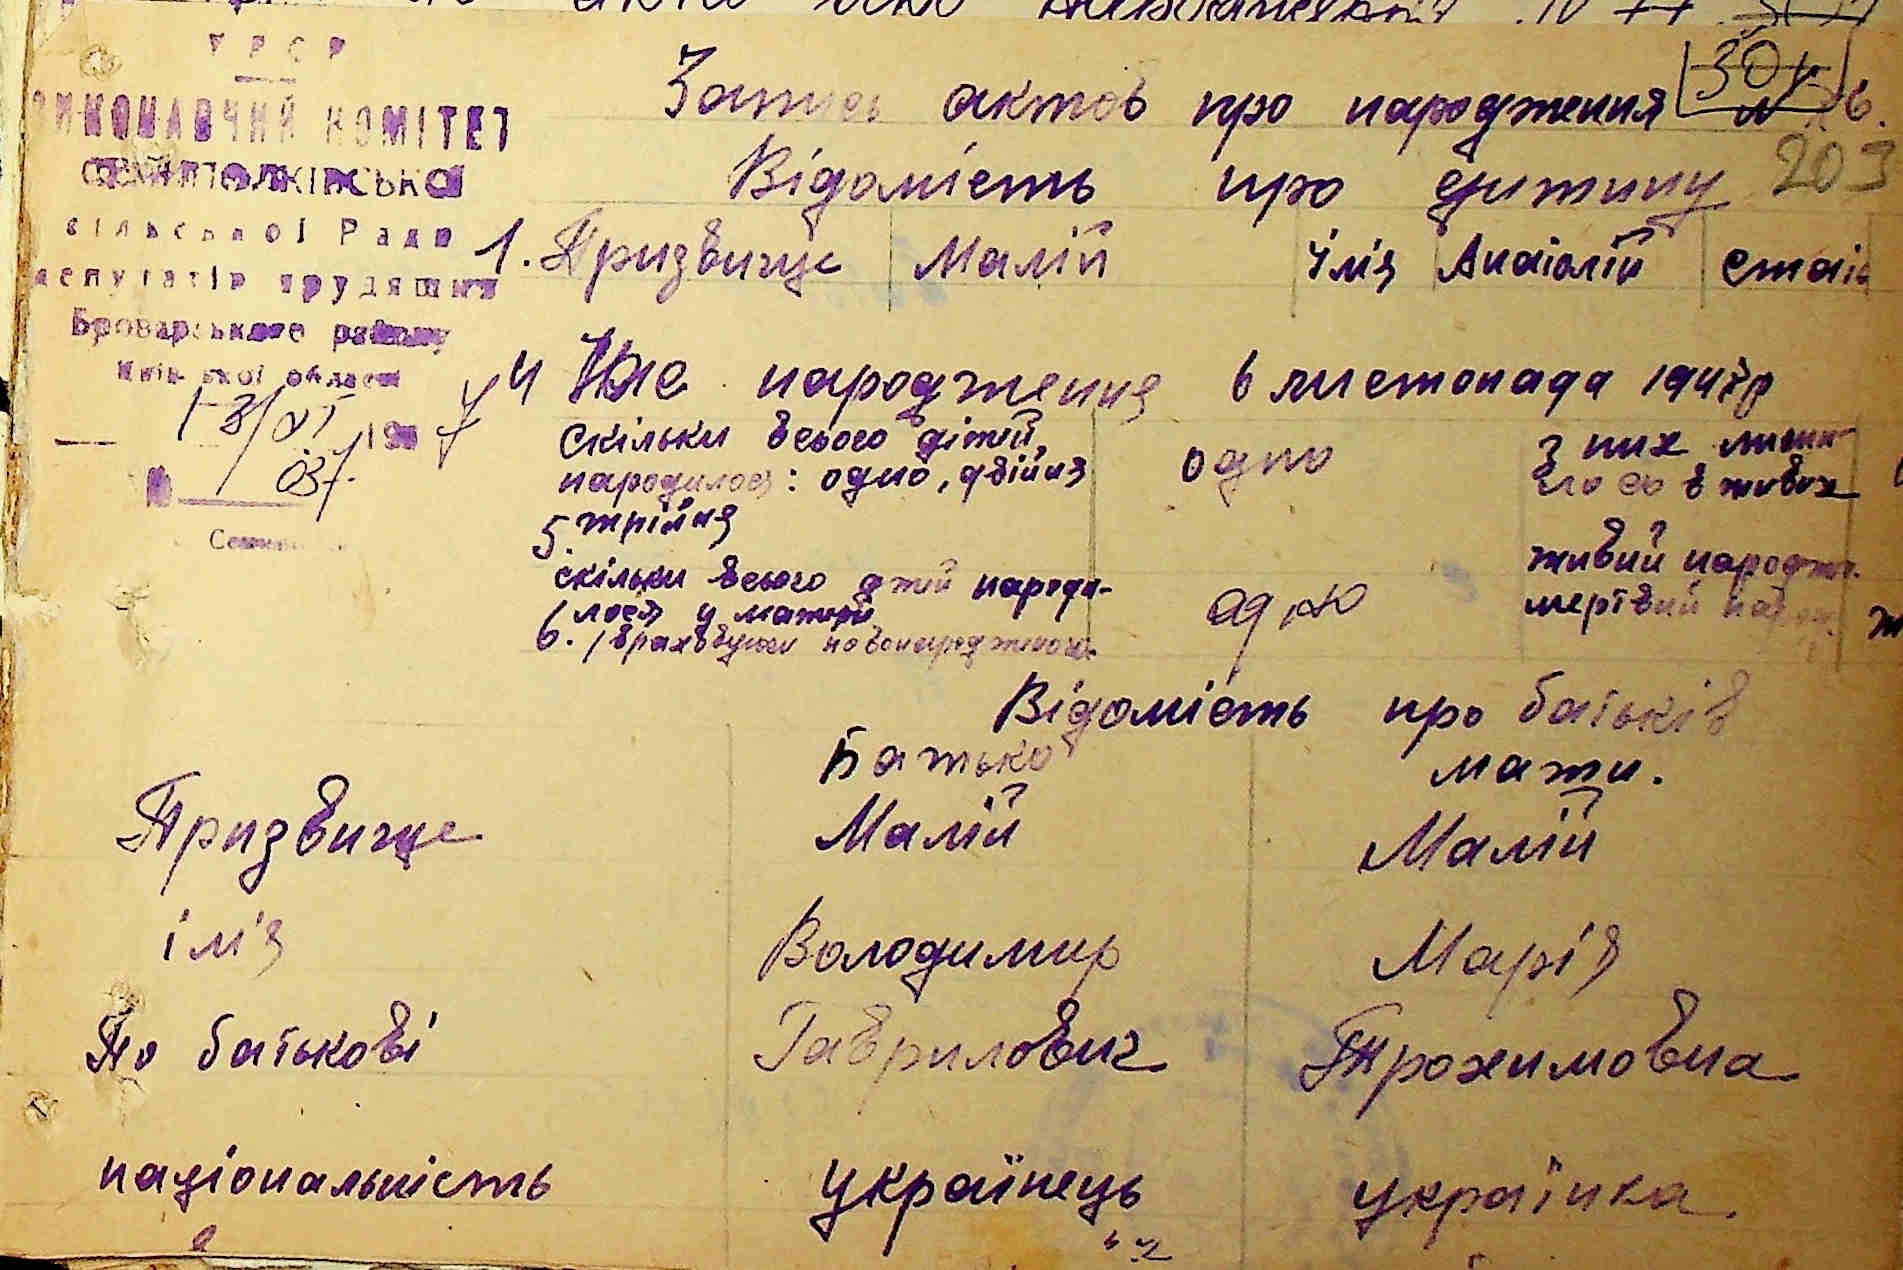 УРСР
ВИКОНАВЧИЙ КОМІТЕТ
сільської Ради
депутатів трудящих
Броварського району
Київської області
Запись актов про народження
30
203
Відомість про дитину
1. Призвище Малій імя Анатолій стать
4 Час народження 6 листопада 1947р
скільки всього дітей
народилося: одно, двійня
5. трійня
одно
з них лиши
лось в живих
скільки всього дітей народи-
лось у матері
6. /враховуючи новонародженого
одно
живий народж.
мертвий народж.
Відомість про батьків
Батько мати.
Призвище Малій Малій
імя Володимир Марія
По батькові Гаврилович Трохимовна
національність українець українка